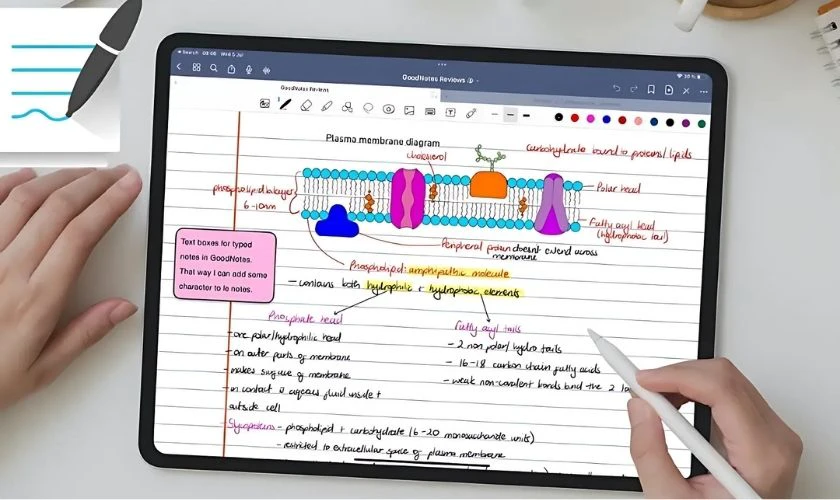 Search 09:06 Wed 5 Jul
GoodNotes Reviews
GoodNotes Reviews
Plasma membrane diagram
cholsterol
Carbohydrate bound to proteins/lipids
phospholipid bilayer
6-10nm
Polar head
Fatty acyl head
(hydrophobic tail)
Peripheral protein doesnt extend across
membrane
Text boxes for typed
notes in GoodNotes.
That way I can add some
character to to notes.
Phospholipid: amphipathic molecule
- contains both hydrophilic + hydrophobic elements
Phosphate head
- one polar/hydrophilic head
- on outer parts of membrane
- makes surface of membrane
- in contact aqueous fluid inside +
outside cell
Fatty acyl tails
- 2 non polar/hydro tails
- 16-18 carbon chain fatty acids
- weak non-covalent bonds bind the 2
- phospholipid + carbohydrate (6-20 monosaccharide units)
- restricted to extracellular space of plasma membrane